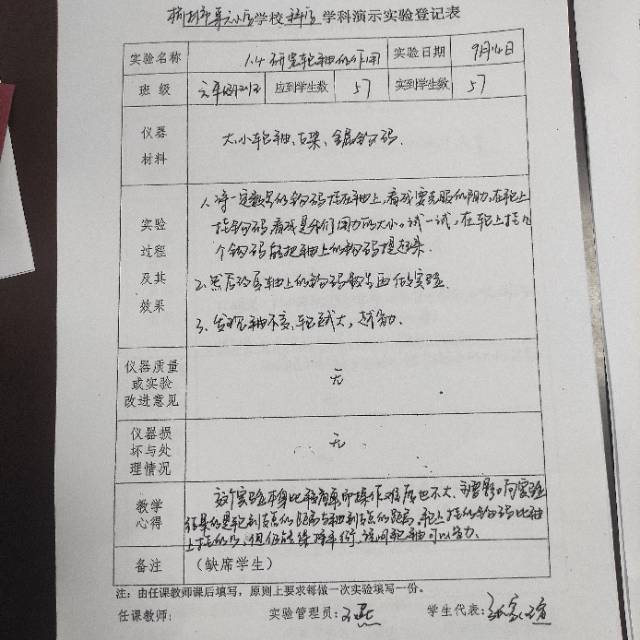 学校 学科演示实验登记表
实验名称 1.4 研究轮轴的作用 实验日期 9月14日
班 级 应到学生数 57 实到学生数 57
仪器材料 大小轮轴、支架、金属钩码.
实验过程及其效果
1、将一定数量的钩码挂在轴上,看成要克服的阻力,在轮上
挂钩码,看成是我们用力的大小。试一试,在轮上挂几
个钩码能把轴上的钩码提起来.
2、然后改变轴上的钩码数量再做实验.
3、发现轴不变、轮越大,越省力.
仪器质量或实验改进意见 无
仪器损坏与处理情况 无
教学心得
这个实验本身比较简单即操作难度也不大,主要影响实验
结果的是轮到支点的距离与轴到支点的距离,轮上挂的钩码比轴
上挂的少,但仍能保持平衡,说明轮轴可以省力.
备注 (缺席学生)
注:由任课教师课后填写,原则上要求每做一次实验填写一份。
任课教师: 实验管理员: 学生代表: